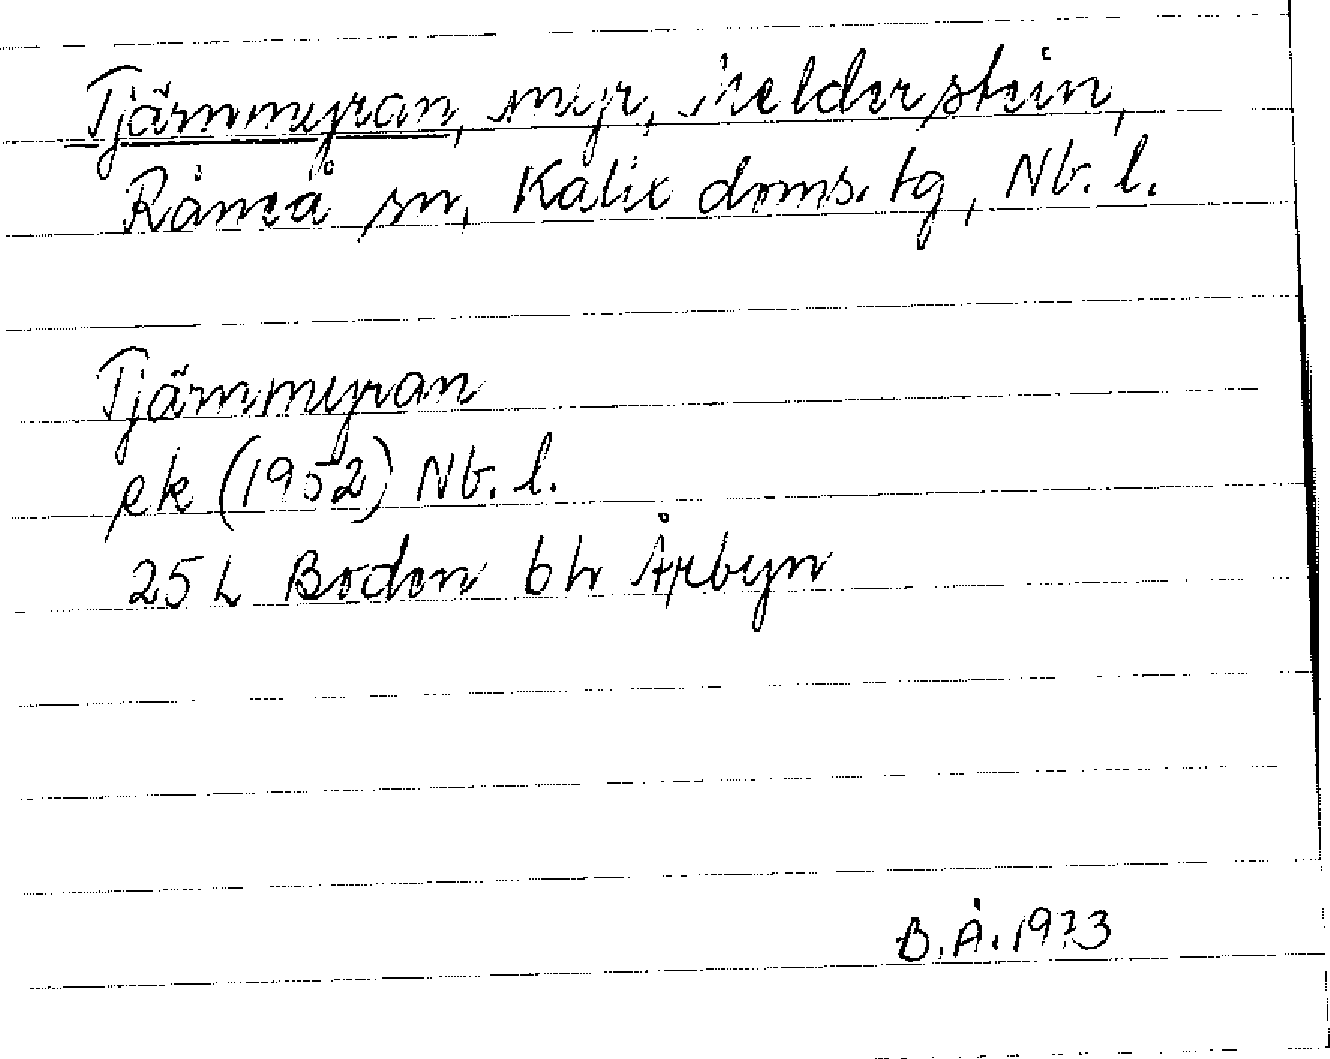 Tjärnmyran, myr, Melderstein,
Råneå sn, Kalix doms. tg, Nb. l.
Tjärnmyran
ek (1952) Nb. l.
25 L Boden bh Årbyn
B.Å. 1973